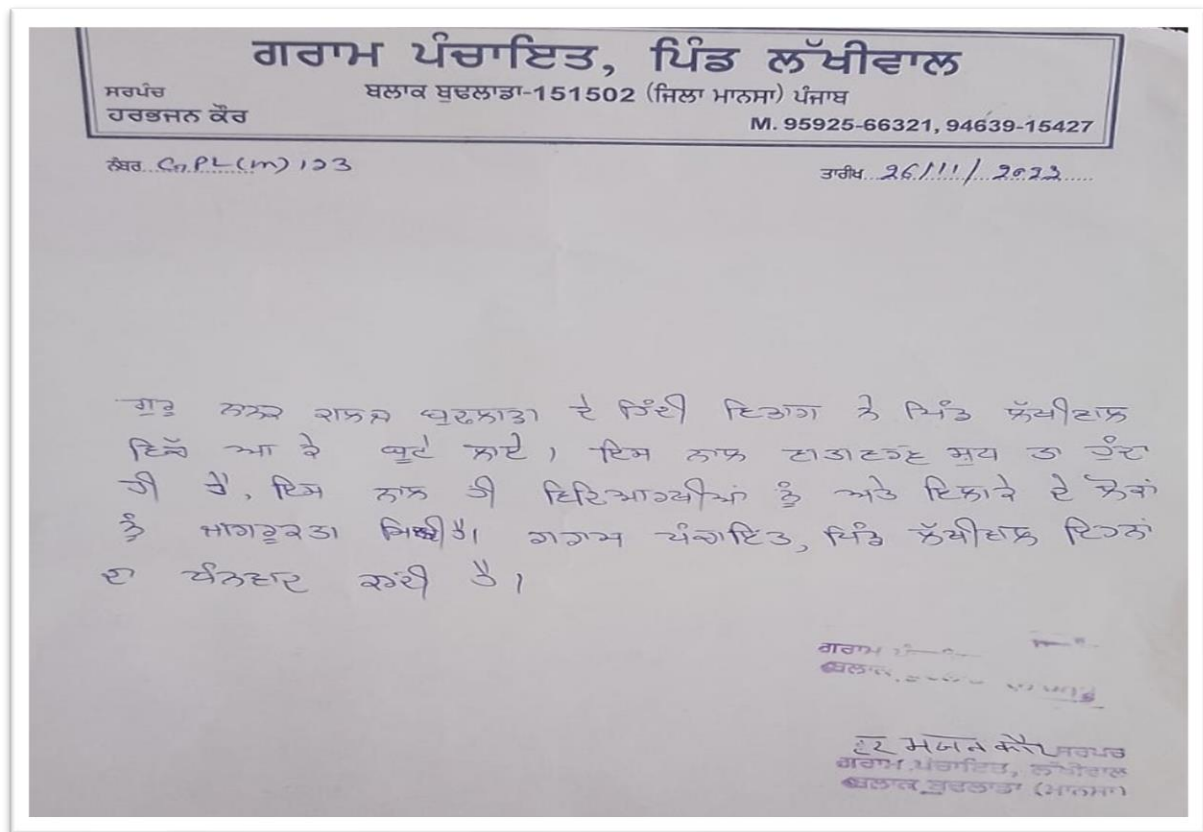 ਗਰਾਮ ਪੰਚਾਇਤ, ਪਿੰਡ ਲੱਖੀਵਾਲ
ਬਲਾਕ ਬੁਢਲਾਡਾ-151502 (ਜਿਲਾ ਮਾਨਸਾ) ਪੰਜਾਬ
ਸਰਪੰਚ
ਹਰਭਜਨ ਕੌਰ
M. 95925-66321, 94639-15427
ਨੰਬਰ GnPL(m) 123
ਤਾਰੀਖ 26/11/2022
ਗੁਰੂ ਨਾਨਕ ਕਾਲਜ ਬੁਢਲਾਡਾ ਦੇ ਹਿੰਦੀ ਵਿਭਾਗ ਨੇ ਪਿੰਡ ਲੱਖੀਵਾਲ
ਵਿੱਚ ਆ ਕੇ ਬੂਟੇ ਲਾਏ। ਇਸ ਨਾਲ ਵਾਤਾਵਰਣ ਸ਼ੁਧ ਤਾ ਹੁੰਦਾ
ਹੀ ਹੈ, ਇਸ ਨਾਲ ਹੀ ਵਿਦਿਆਰਥੀਆਂ ਨੂੰ ਅਤੇ ਇਲਾਕੇ ਦੇ ਲੋਕਾਂ
ਨੂੰ ਜਾਗਰੂਕਤਾ ਮਿਲਦੀ ਹੈ। ਗਰਾਮ ਪੰਚਾਇਤ, ਪਿੰਡ ਲੱਖੀਵਾਲ ਇਹਨਾਂ
ਦਾ ਧੰਨਵਾਦ ਕਰਦੀ ਹੈ।
ਗਰਾਮ
ਬਲਾਕ
ਹਰਭਜਨ ਕੌਰ ਸਰਪੰਚ
ਗਰਾਮ ਪੰਚਾਇਤ, ਲੱਖੀਵਾਲ
ਬਲਾਕ ਬੁਢਲਾਡਾ (ਮਾਨਸਾ)